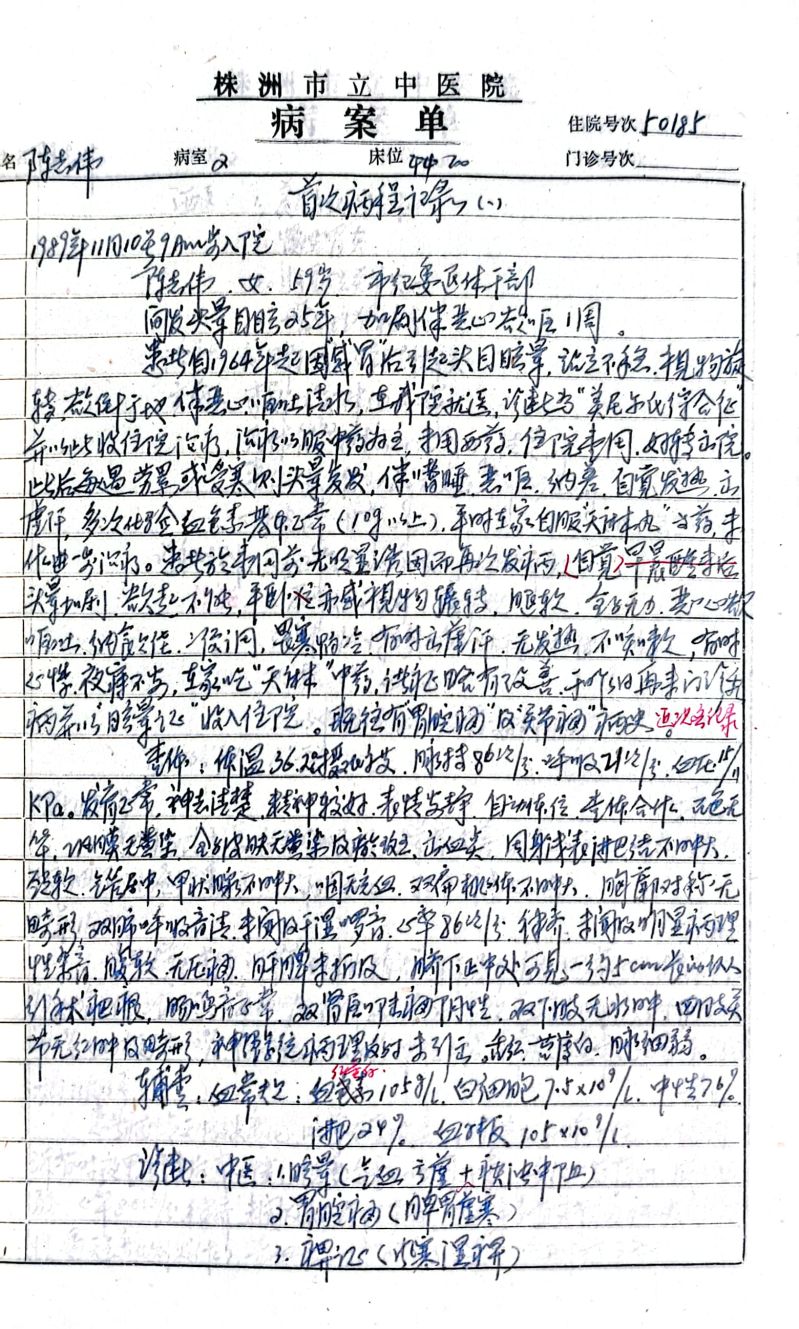 株洲市立中医院
病案单
住院号次 50185
名 陈志伟 病室 2 床位 门诊号次
首次病程记录(一)
1989年11月10日9Am步入院
陈志伟 女 59岁 市纪委退休干部
间发头晕目眩25年,加剧伴恶心欲呕1周。
患者自1964年起因"感冒"后引起头目眩晕,站立不稳,视物旋
转,欲倒于地,伴恶心呕吐清水,在我院就医,诊断为"美尼尔氏综合征"
并以此收住院治疗,治疗以服中药为主,未用西药,住院周,好转出院。
此后每遇劳累或受寒则头晕复发,伴嗜睡、恶呕、纳差、自觉发热、出
虚汗,多次化验血色素基本正常(10g以上),平时在家自服"天麻丸"等药,未
作进一步治疗。患者于周前无明显诱因而再次发病,自觉早晨醒来后
头晕加剧,欲起不能,平卧位亦感视物旋转,肢软,全身无力,恶心欲
呕吐,纳食欠佳,畏寒怕冷,有时出虚汗,无发热,不咳嗽,有时
心悸,夜寐不安,在家吃"天麻"中药,诸症略有改善,于今日再来门诊看
病并以"眩晕证"收入住院。既往有"胃脘痛"及"关节痛"病史。
查体:体温36.2℃ 脉搏86次/分 呼吸21次/分 血压15/11
KPa。发育正常,神志清楚,精神较好,表情安静,自动体位,查体合作,面色无
华,巩膜无黄染,全身皮肤无黄染及瘀斑、出血点,周身浅表淋巴结不肿大,
颈软,气管居中,甲状腺不肿大,咽无充血,双扁桃体不肿大,胸廓对称无
畸形,双肺呼吸音清,未闻及干湿啰音,心率86次/分,律齐,未闻及明显病理
性杂音,腹软,无压痛,肝脾未扪及,脐下正中处可见一约5cm长的纵人
引手术疤痕,肠鸣音正常,双肾区叩击痛阴性,双下肢无水肿,四肢关
节无红肿及畸形,神经系统病理反射未引出。舌淡苔薄白,脉细弱。
辅查:血常规:血红蛋白105g/L 白细胞7.5×10⁹/L 中性76%
淋巴24% 血小板105×10⁹/L
诊断:中医:1.眩晕(气血亏虚+痰浊中阻)
2.胃脘痛(脾胃虚寒)
3.痹证(风寒湿痹)